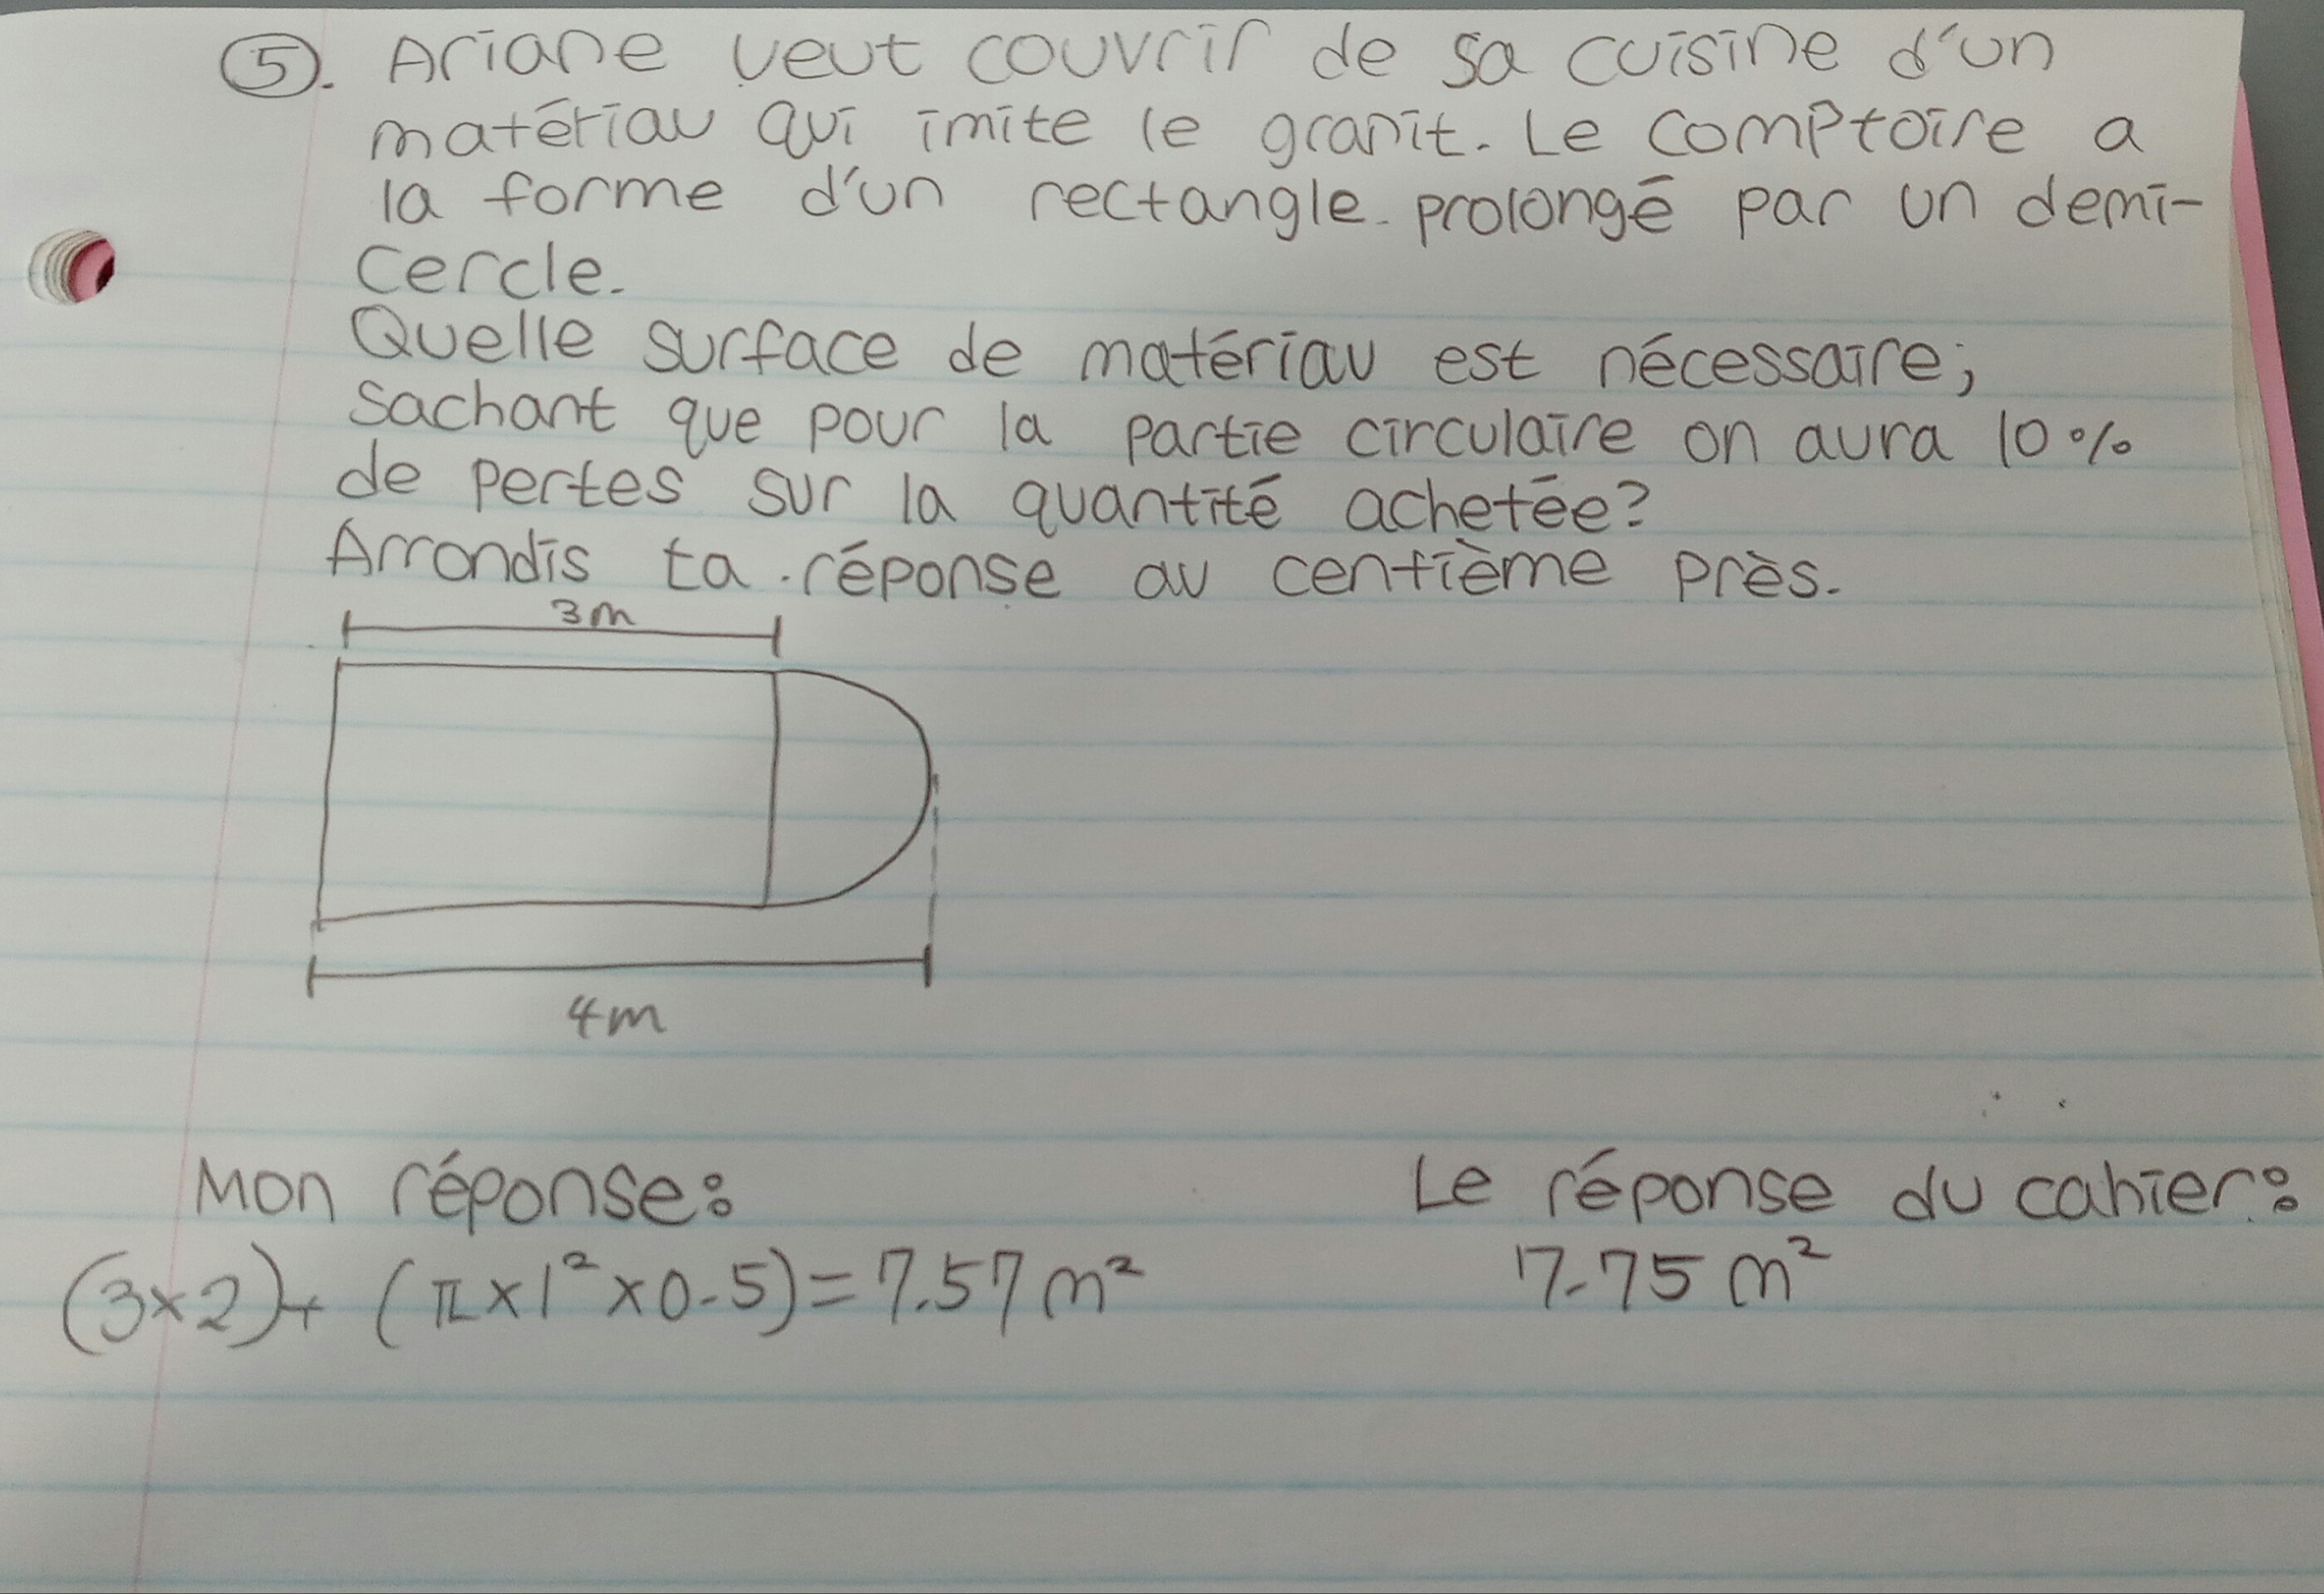 5. Ariane veut couvrir de sa cuisine d'un
matériau qui imite le granit. Le comptoire a
la forme d'un rectangle prolongé par un demi-
cercle.
Quelle surface de matériau est nécessaire;
sachant que pour la partie circulaire on aura 10%
de pertes sur la quantité achetée?
Arrondis ta réponse au centième près.
3m
4m
Mon réponse:
(3×2)+ (π×1²×0.5)=7.57m²
Le réponse du cahier:
7.75 m²